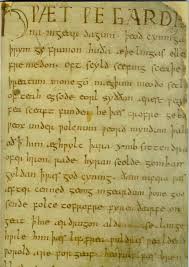 HǷÆT ǷE GARDE
na ingear dagum þeod cyninga
þrym ge frunon huða æþelingas elle
fre medon. oft scyld scefing sceaþe
þreatum monegū mægþum meodo setl
of teah egsode eorl syððan ærest ƿear
fea sceaft funden he þæs frofre geba
ƿeox under ƿolcnum ƿeorð myndum þah
oð þ him æghƿylc þara ymb sittendra
ofer hron rade hyran scolde gomban
gyldan þ ƿæs god cyning. ðæm eafera ƿæs
æfter cenned geong ingeardum þone god
sende folce tofrofre fyren ðearfe on
geat þ hie ær drugon aldor ase. lange
hƿile him þæs lif frea ƿuldres ƿealdend
ƿorold are for geaf. beoƿulf ƿæs breme